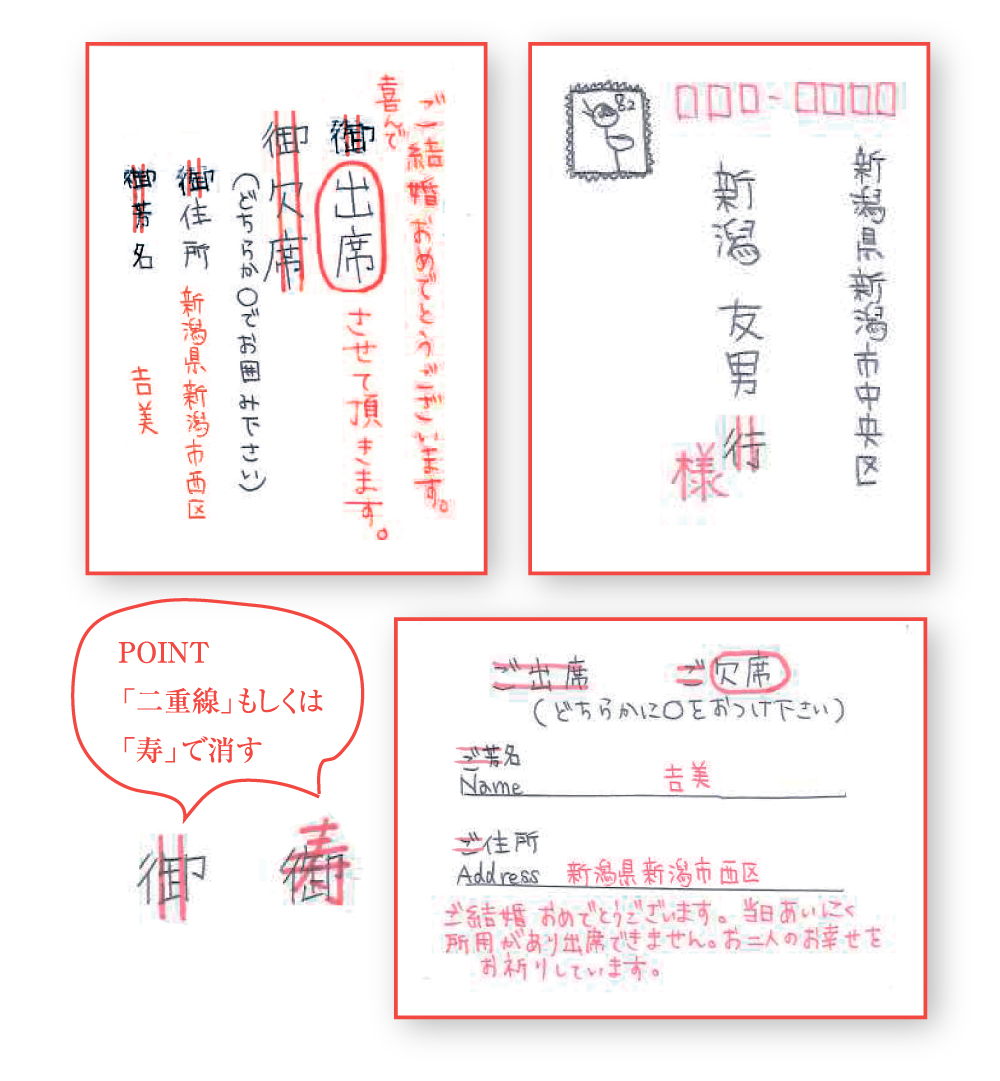 ご結婚おめでとうございます。
喜んで
御出席させて頂きます。
御欠席
(どちらか〇でお囲み下さい)
御住所 新潟県新潟市西区
御芳名 吉美
82
新潟県新潟市中央区
新潟 友男 行
様
POINT
「二重線」もしくは
「寿」で消す
御 御
寿
ご出席 ご欠席
(どちらかに〇をおつけ下さい)
ご芳名
Name 吉美
ご住所
Address 新潟県新潟市西区
ご結婚おめでとうございます。当日あいにく
所用があり出席できません。お二人のお幸せを
お祈りしています。